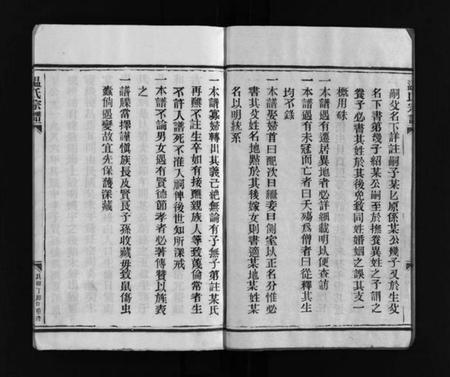 嗣父名下詳註嗣子某乜原係某公幾子又於生父
名下書第幾子紹某公嗣至於撫養異姓之子謂之
養子必書其姓於其後免致同姓婚姻之誤其支一
概用硃
一本譜遇有遷居異地者必詳細載明以便查訪
一本譜遇有未冠而亡者曰夭殤爲僧者曰從釋其生
均不錄
一本譜娶婦首曰配次曰繼妾曰側室以正名分惟必
書其父姓名地點於其後嫁女則書適某地某姓某
名以明統系
一本譜寡婦轉出其義已絕無論有子無子第註某氏
再醮不註生卒如有接醮親族人等致蔑倫常者生
不許入譜死不准入祠俾後世知所深戒
一本譜不論男女遇有賢德節孝者必著傳贊以旌表
之
一譜牒當擇謹愼族長及賢良子孫收藏毋致鼠傷虫
蠹倘遇變故宜先保護深藏
溫氏宗譜